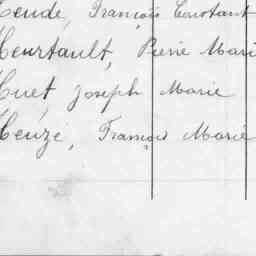 Heude, François Constant
Heurtault, Pierre Mari
Huet, Joseph Marie
Heuzé, François Marie